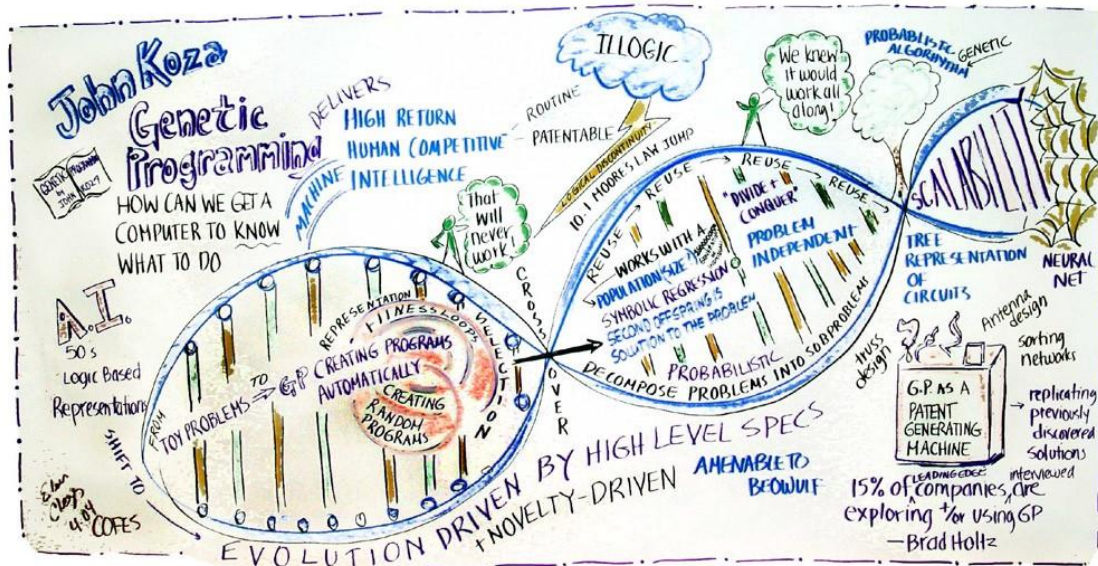 John Koza
Genetic
Programming
GENETIC PROGRAMMING
by
JOHN KOZA
HOW CAN WE GET A
COMPUTER TO KNOW
WHAT TO DO
DELIVERS
HIGH RETURN
HUMAN COMPETITIVE
MACHINE INTELLIGENCE
ROUTINE
PATENTABLE
ILLOGIC
LOGICAL DISCONTINUITY
10-1 MOORE'S LAW JUMP
That
will
never
work!
We knew
it would
work all
along!
PROBABLISTIC
ALGORHYTHM
GENETIC
A.I.
50s
Logic Based
Representations
SHIFT TO
FROM
TOY PROBLEMS
TO
GP CREATING PROGRAMS
AUTOMATICALLY
REPRESENTATION
FITNESS LOOPS
SELECTION
CREATING
RANDOM
PROGRAMS
CROSS OVER
REUSE
REUSE
REUSE
REUSE
WORKS WITH A
POPULATION (SIZE)
SYMBOLIC REGRESSION
SECOND OFFSPRING IS
SOLUTION TO THE PROBLEM
"DIVIDE +
CONQUER"
PROBLEM
INDEPENDENT
PROBABILISTIC
DECOMPOSE PROBLEMS INTO SUBPROBLEMS
SCALABILITY
NEURAL
NET
TREE
REPRESENTATION
OF
CIRCUITS
truss
design
Antenna
design
sorting
networks
replicating
previously
discovered
solutions
G.P. AS A
PATENT
GENERATING
MACHINE
EVOLUTION DRIVEN BY HIGH LEVEL SPECS
+ NOVELTY-DRIVEN
AMENABLE TO
BEOWULF
LEADING EDGE
interviewed
15% of companies are
exploring +/or using GP
—Brad Holtz
4.04
COFES